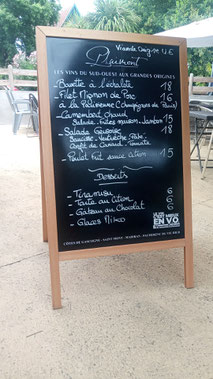 Plaimont
LES VINS DU SUD-OUEST AUX GRANDES ORIGINES
- Bavette à l'échalote 16
- Filet Mignon de Porc 18
à la Pâtissière (Champignons de Paris)
- Camembert chaud 15
Salade, Frites maison, Jambon
- Salade Gersoise 18
Confit de Canard, Tomate
- Poulet frit sauce citron 15
Desserts
- Tiramisu 6
- Tarte au Citron 6
- Gâteau au Chocolat 6
- Glaces Miko
EN VO
CÔTES DE GASCOGNE - SAINT MONT - MADIRAN - PACHERENC DU VIC BILH